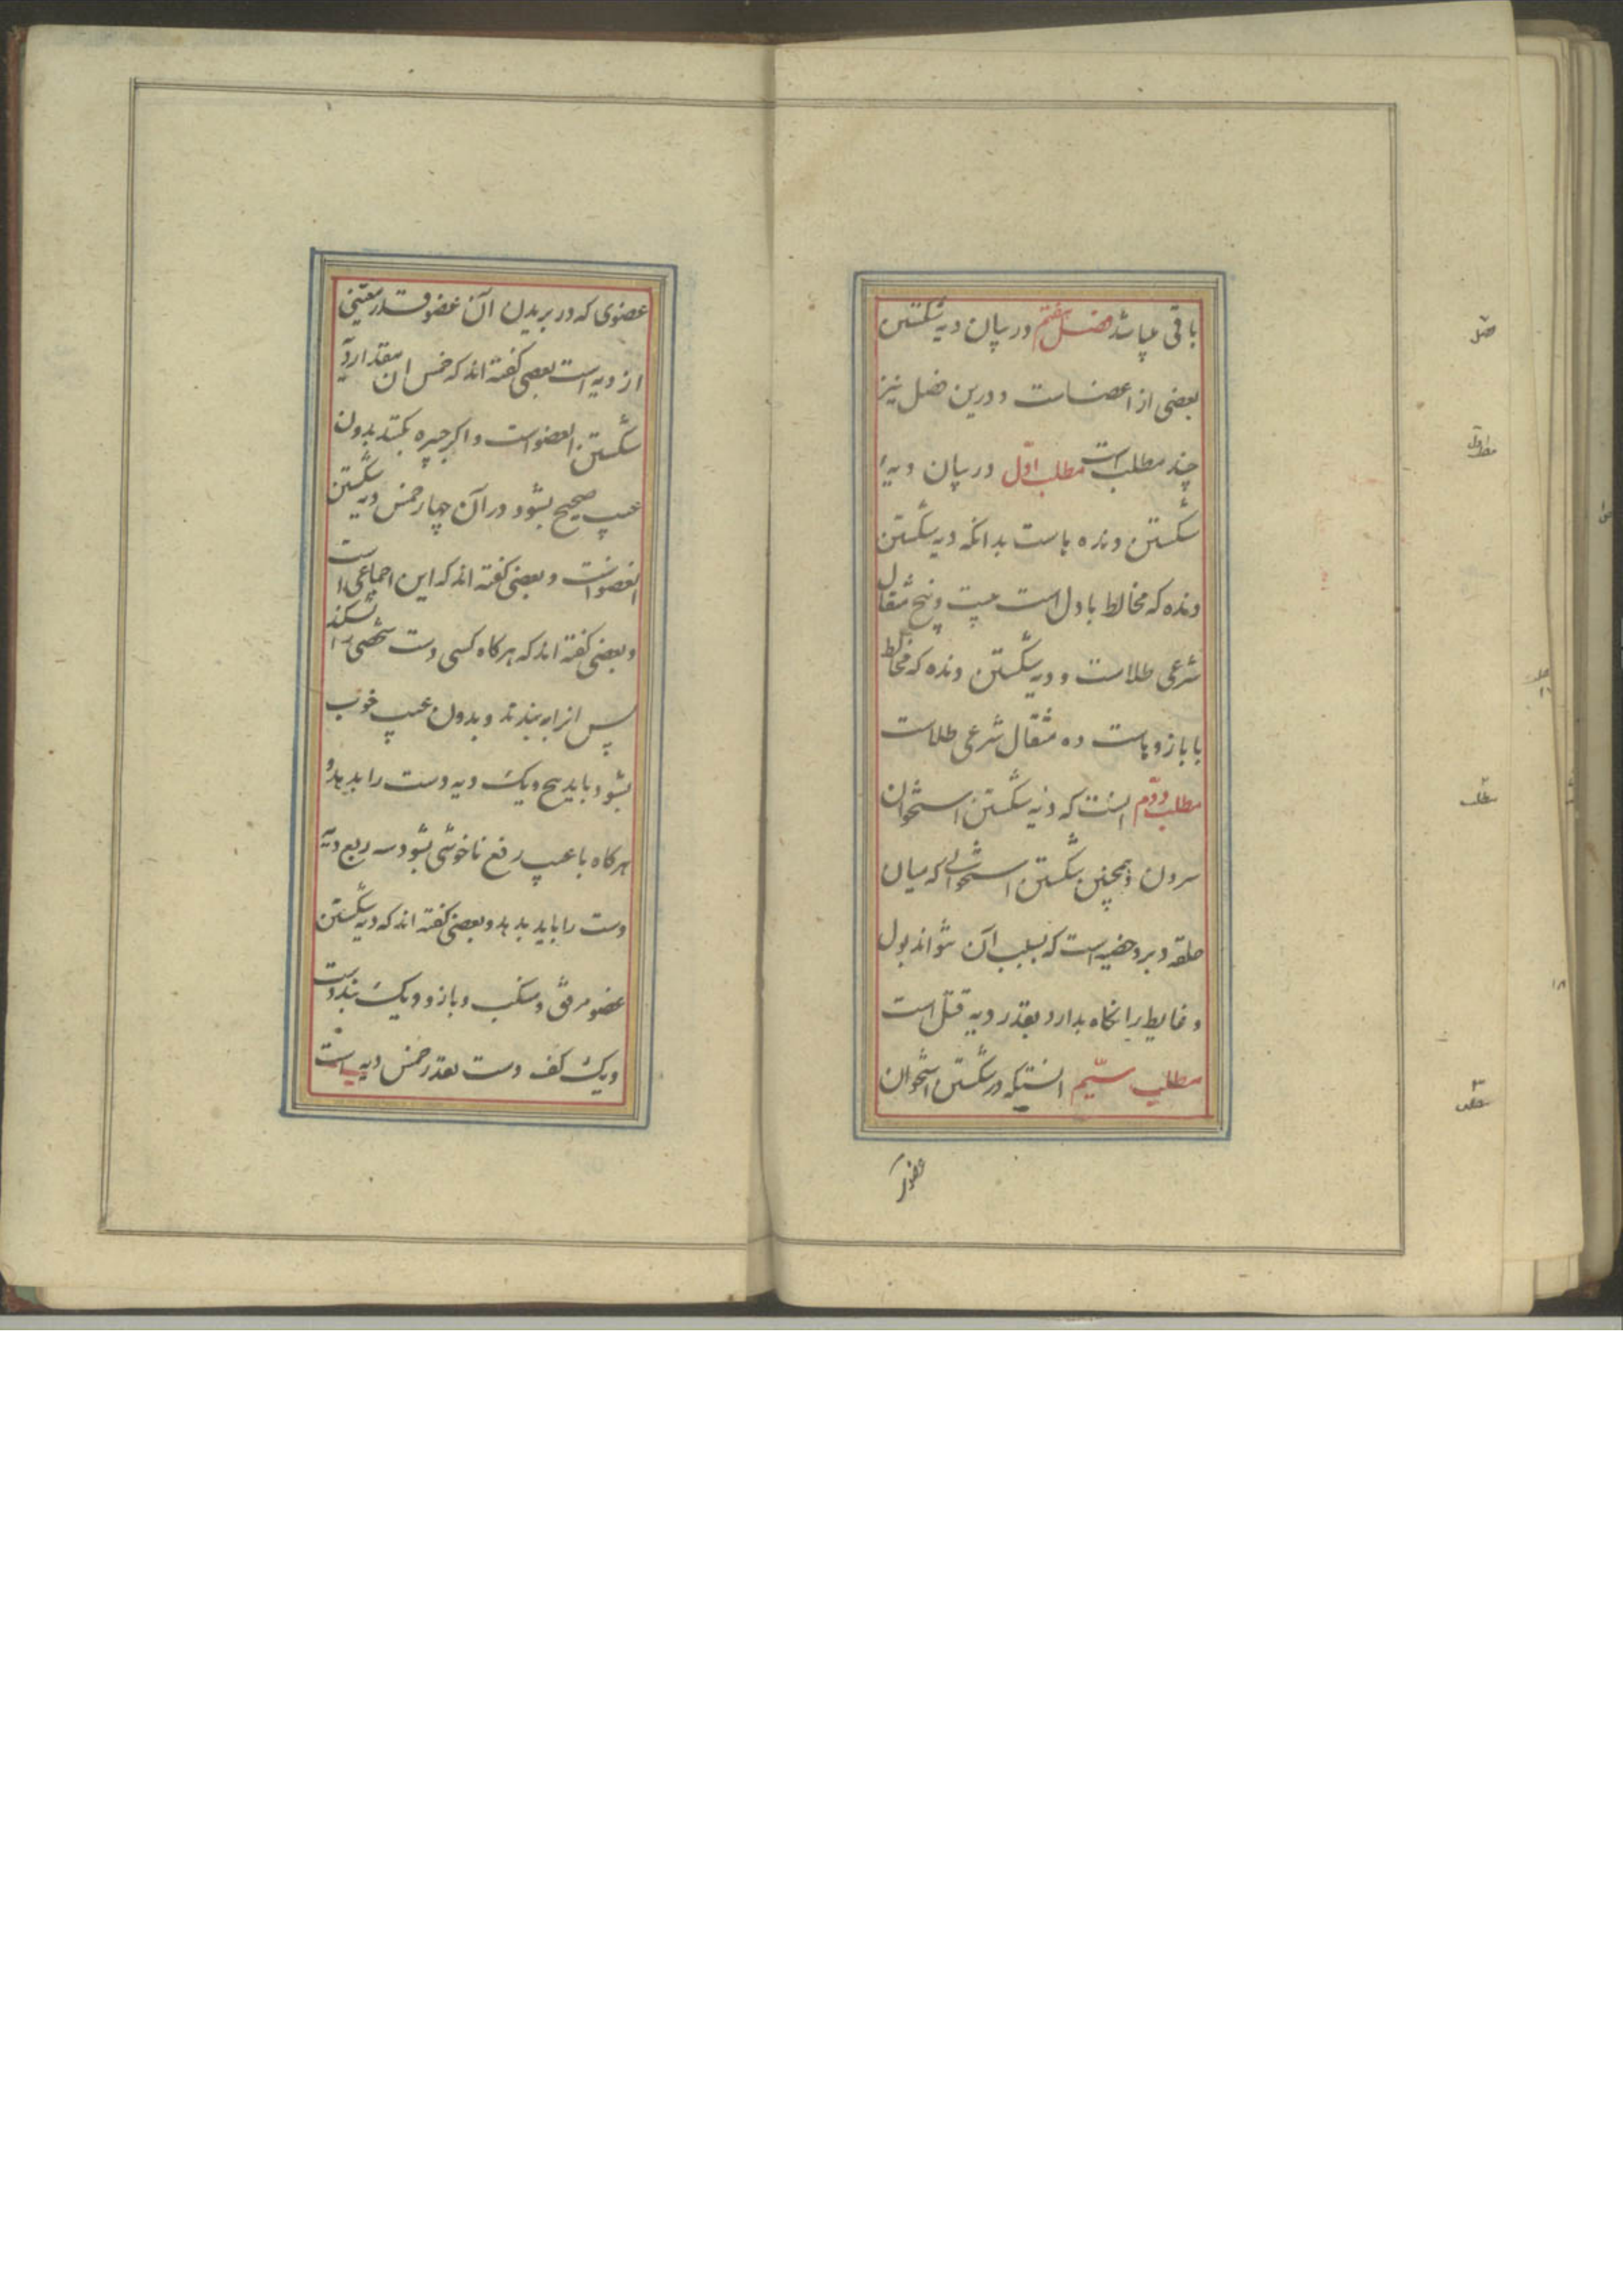 باقی میباشد فصل هفتم در بیان دیه شکستن
بعضی از اعضاست و درین فصل نیز
چند مطلب است مطلب اوّل در بیان دیهٔ
شکستن دنده هاست بدانکه دیه شکستن
دنده که مخالط با دل است بیست و پنج مثقال
شرعی طلاست و دیه شکستن دنده که مخالط
با بازوهاست ده مثقال شرعی طلاست
مطلب دوّم انست که دیه شکستن استخوان
سرون و همچنین شکستن استخوانی که میان
حلقه دبر و خصیه است که بسبب آن نتواند بول
و غایط را نگاه بدارد بقدر دیه قتل است
مطلب سیّم انستکه در شکستن استخوان
عضوی که
فصل
مطلب اول
مطلب ۲
مطلب ۳
عضوی که در بریدن آن عضو قدر معینی
از دیه است بعضی گفته اند که خمس ان مقدار دیه
شکستن انعضو است و اگر جبیره بکنند بدون
عیب صحیح بشود در آن چهار خمس دیه شکستن
انعضو است و بعضی گفته اند که این اجماعی است
و بعضی گفته اند که هرکاه کسی دست شخصی را بشکند
پس انرا ببندند و بدون عیب خوب
بشود باید پنج یک دیه دست را بدهد و
هرکاه با عیب رفع ناخوشی بشود سه ربع دیه
دست را باید بدهد و بعضی گفته اند که دیه شکستن
عضو مرفق و منکب و بازو و یک بند دست
و یک کف دست بقدر خمس دیه است